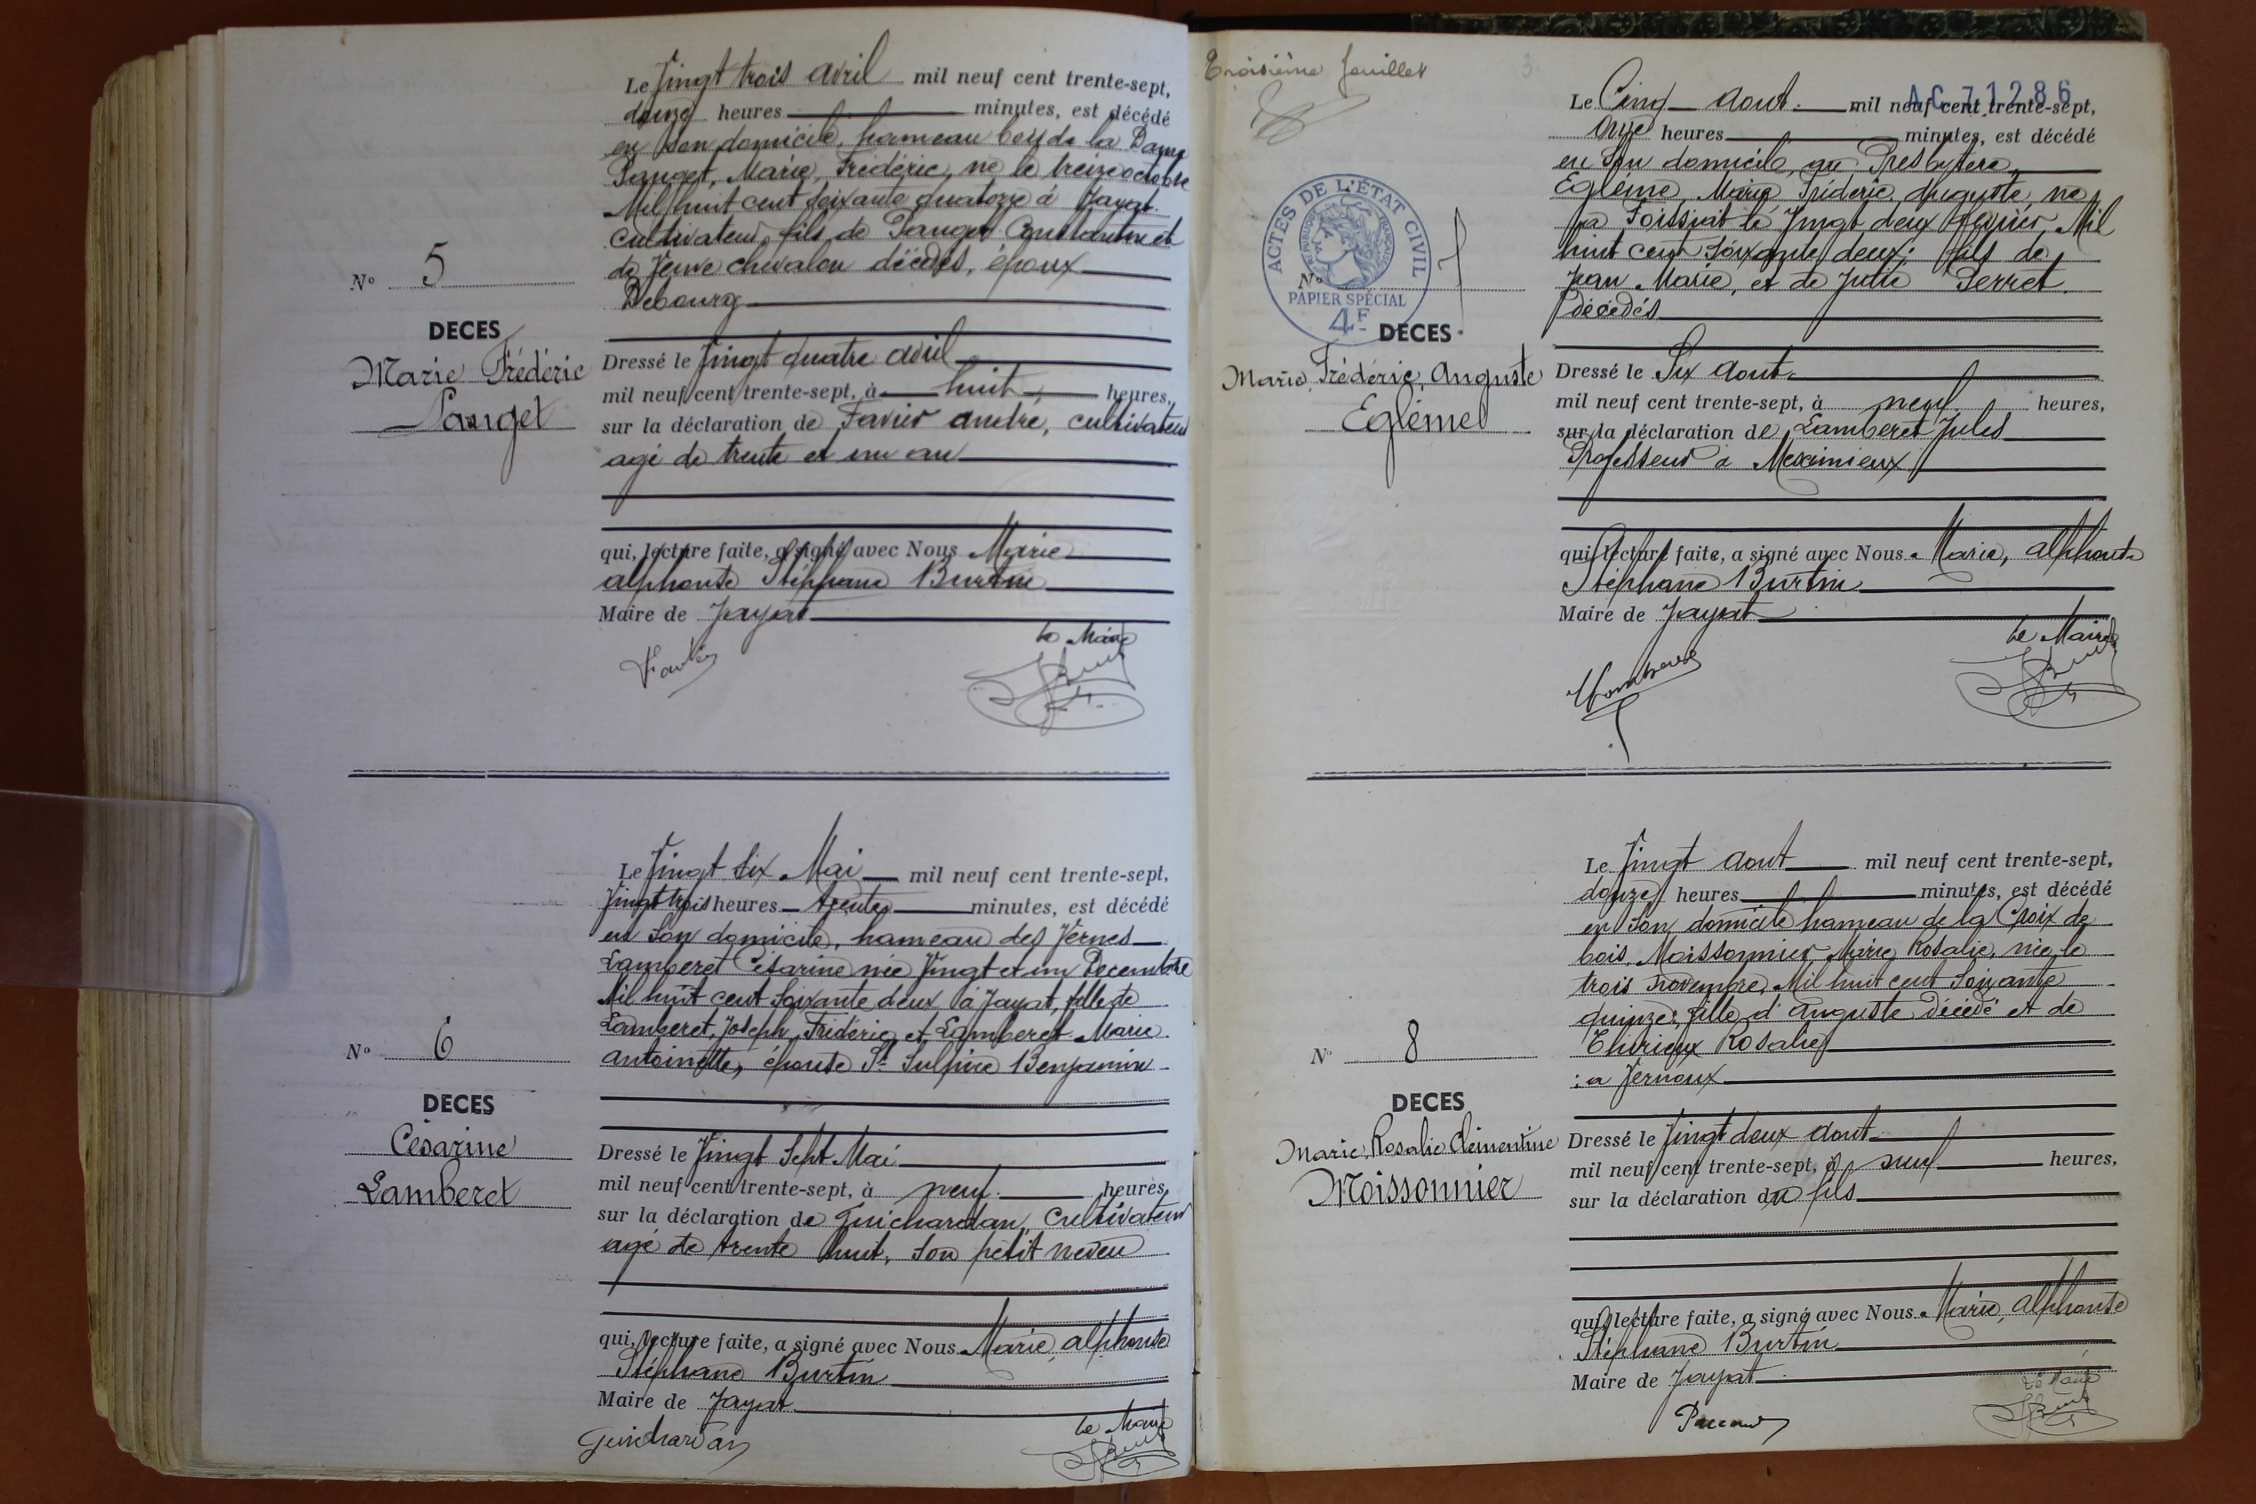 Le Vingt trois avril mil neuf cent trente-sept,
douze heures minutes, est décédé
en son domicile, hameau de la Dame
Panget, Marie, Frédéric, né le treize octobre
Mil huit cent soixante quatorze à Jayat
cultivateur, fils de Panget Constantin et
de Veuve chevalon décédés, époux
Debourg
N° 5
DECES
Marie Frédéric
Panget
Dressé le Vingt quatre avril
mil neuf cent trente-sept, à huit heures,
sur la déclaration de Favier andré, cultivateur
agé de trente et un an
qui, lecture faite, a signé avec Nous Marie
alphonse Stéphane Burtin
Maire de Jayat
Le Maire
Le Vingt six Mai mil neuf cent trente-sept,
Vingt trois heures trente minutes, est décédé
en son domicile, hameau des Vernes
Lamberet Césarine née Vingt et un Decembre
Mil huit cent soixante deux à Jayat, fille de
Lamberet, Joseph, Frédéric et Lamberet Marie
antoinette, épouse St Sulpice Benjamin
N° 6
DECES
Césarine
Lamberet
Dressé le Vingt Sept Mai
mil neuf cent trente-sept, à neuf heures,
sur la déclaration de Guichardan, cultivateur
agé de trente huit, son petit neveu
qui, lecture faite, a signé avec Nous Marie, alphonse
Stéphane Burtin
Maire de Jayat
Le Maire
Guichardan
Troisième feuillet
3
AC 71286
Le Cinq aout mil neuf cent trente-sept,
onze heures minutes, est décédé
en son domicile, au Presbytère,
Egléme, Marie, Fréderic, auguste, né
à Foissiat le Vingt deux fevrier, Mil
huit cent soixante deux; fils de
Jean Marie, et de Julie Perret
décédés
ACTES DE L'ÉTAT CIVIL
PAPIER SPÉCIAL
4F
N° 7
DECES
Marie, Frédéric, Auguste
Egléme
Dressé le Six aout
mil neuf cent trente-sept, à neuf heures,
sur la déclaration de Lamberet Jules
Professeur à Meximieux
qui, lecture faite, a signé avec Nous Marie, alphonse
Stéphane Burtin
Maire de Jayat
Le Maire
Le Vingt aout mil neuf cent trente-sept,
douze heures minutes, est décédé
en son domicile hameau de la Croix de
bois Moissonnier, Marie, Rosalie, née le
trois novembre, Mil huit cent soixante
quinze, fille d'auguste décédé et de
Thirieux Rosalie
à Vernoux
N° 8
DECES
Marie, Rosalie Clémentine
Moissonnier
Dressé le Vingt deux aout
mil neuf cent trente-sept, à neuf heures,
sur la déclaration du fils
qui, lecture faite, a signé avec Nous Marie, alphonse
Stéphane Burtin
Maire de Jayat
Le Maire